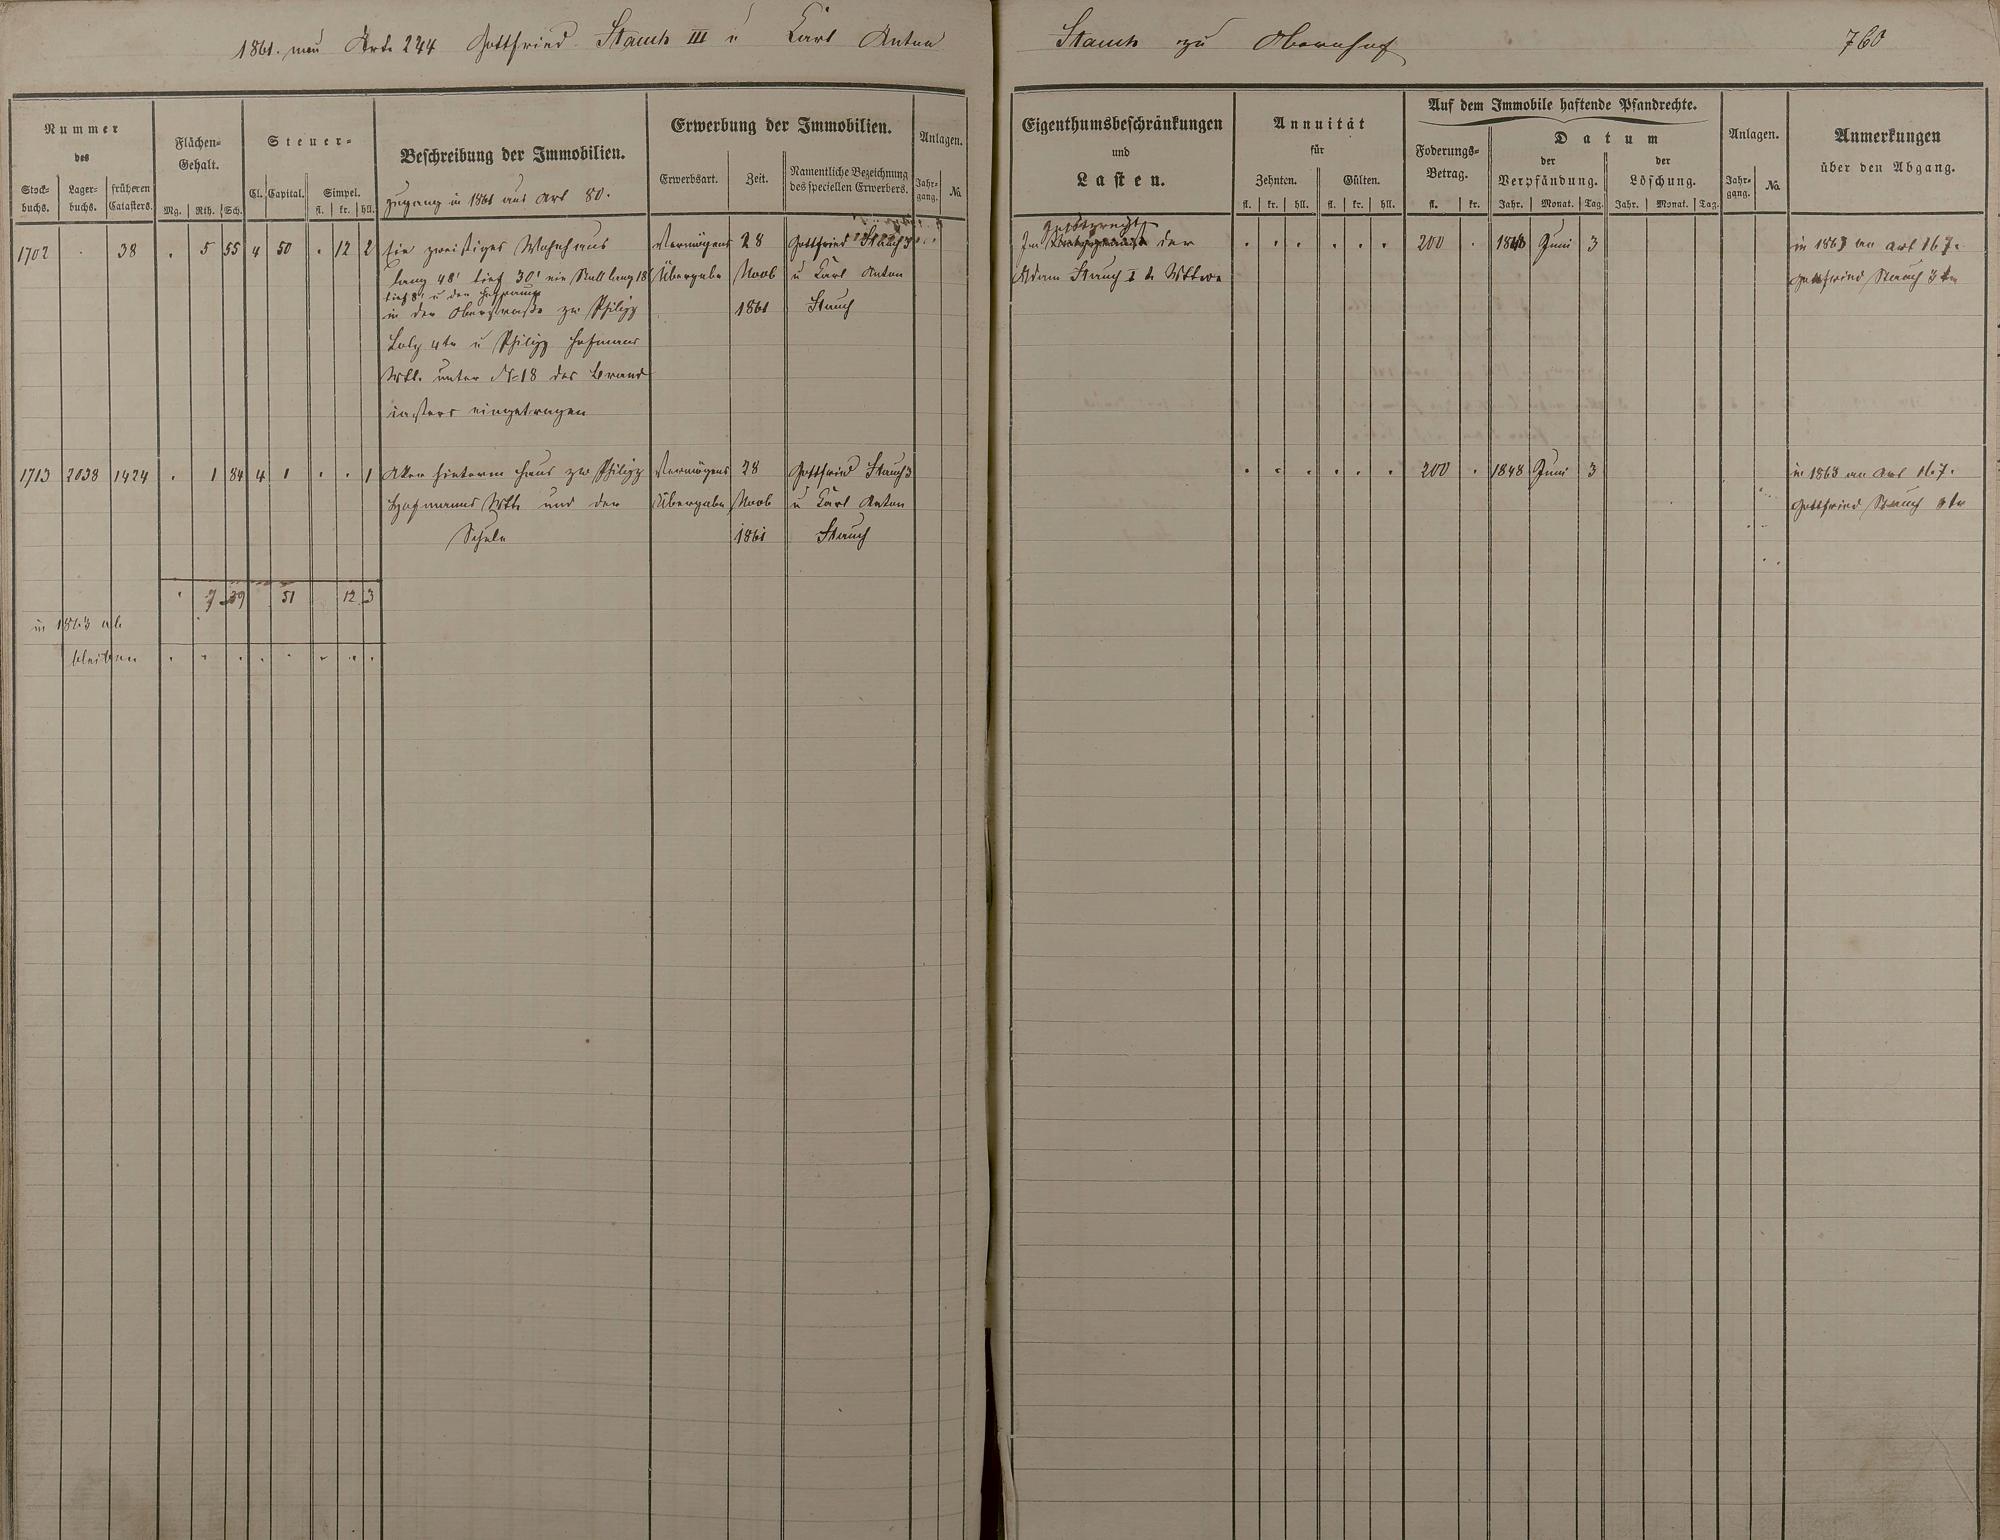 1861. neu Art. 244 Gottfried Stauch III u Karl Anton Stauch zu Obernhof 760
Nummer des
Stock-buchs. Lager-buchs. früheren Catasters.
Flächen-Gehalt.
Mg. Rth. Sch.
Steuer-
Cl. Capital. Simpel.
fl. kr. hll.
Beschreibung der Immobilien.
Zugang in 1861 aus Art 80.
Erwerbung der Immobilien.
Erwerbsart. Zeit. Namentliche Bezeichnung des speciellen Erwerbers.
Anlagen.
Jahr-gang. No.
Eigenthumsbeschränkungen
und
Lasten.
Annuität
für
Zehnten. Gülten.
fl. kr. hll. fl. kr. hll.
Auf dem Immobile haftende Pfandrechte.
Foderungs-Betrag.
fl. kr.
Datum
der Verpfändung. der Löschung.
Jahr. Monat. Tag. Jahr. Monat. Tag.
Anlagen.
Jahr-gang. No.
Anmerkungen
über den Abgang.
1702 . 38 . 5 55 4 50 . 12 2
Ein zweistiges Wohnhaus
lang 48' tief 30' ein Stall lang 18'
tief 8' u den Hofraum
in der Oberstraße zw Philipp
u Philipp Hofmans
Wtb. unter N. 18 des Brand
catasters eingetragen
Vermögens
Übergabe
28
Novb
1861
Gottfried Stauch 3
u Karl Anton
Stauch
der
Adam Stauch I te Wittwe
200 . 1848 Juni 3
in 1863 an Art 167.
Gottfried Stauch 3te
1713 2038 1424 . 1 84 4 1 . . 1
Aker hinterm Haus zw Philipp
Hofmanns Wtb. und der
Schule
Vermögens
Übergabe
28
Novb
1861
Gottfried Stauch 3
u Karl Anton
Stauch
200 . 1848 Juni 3
in 1863 an Art 167.
Gottfried Stauch
. 7 39 51 12 3
in 1863 ab
bleiben . . . . . . . .